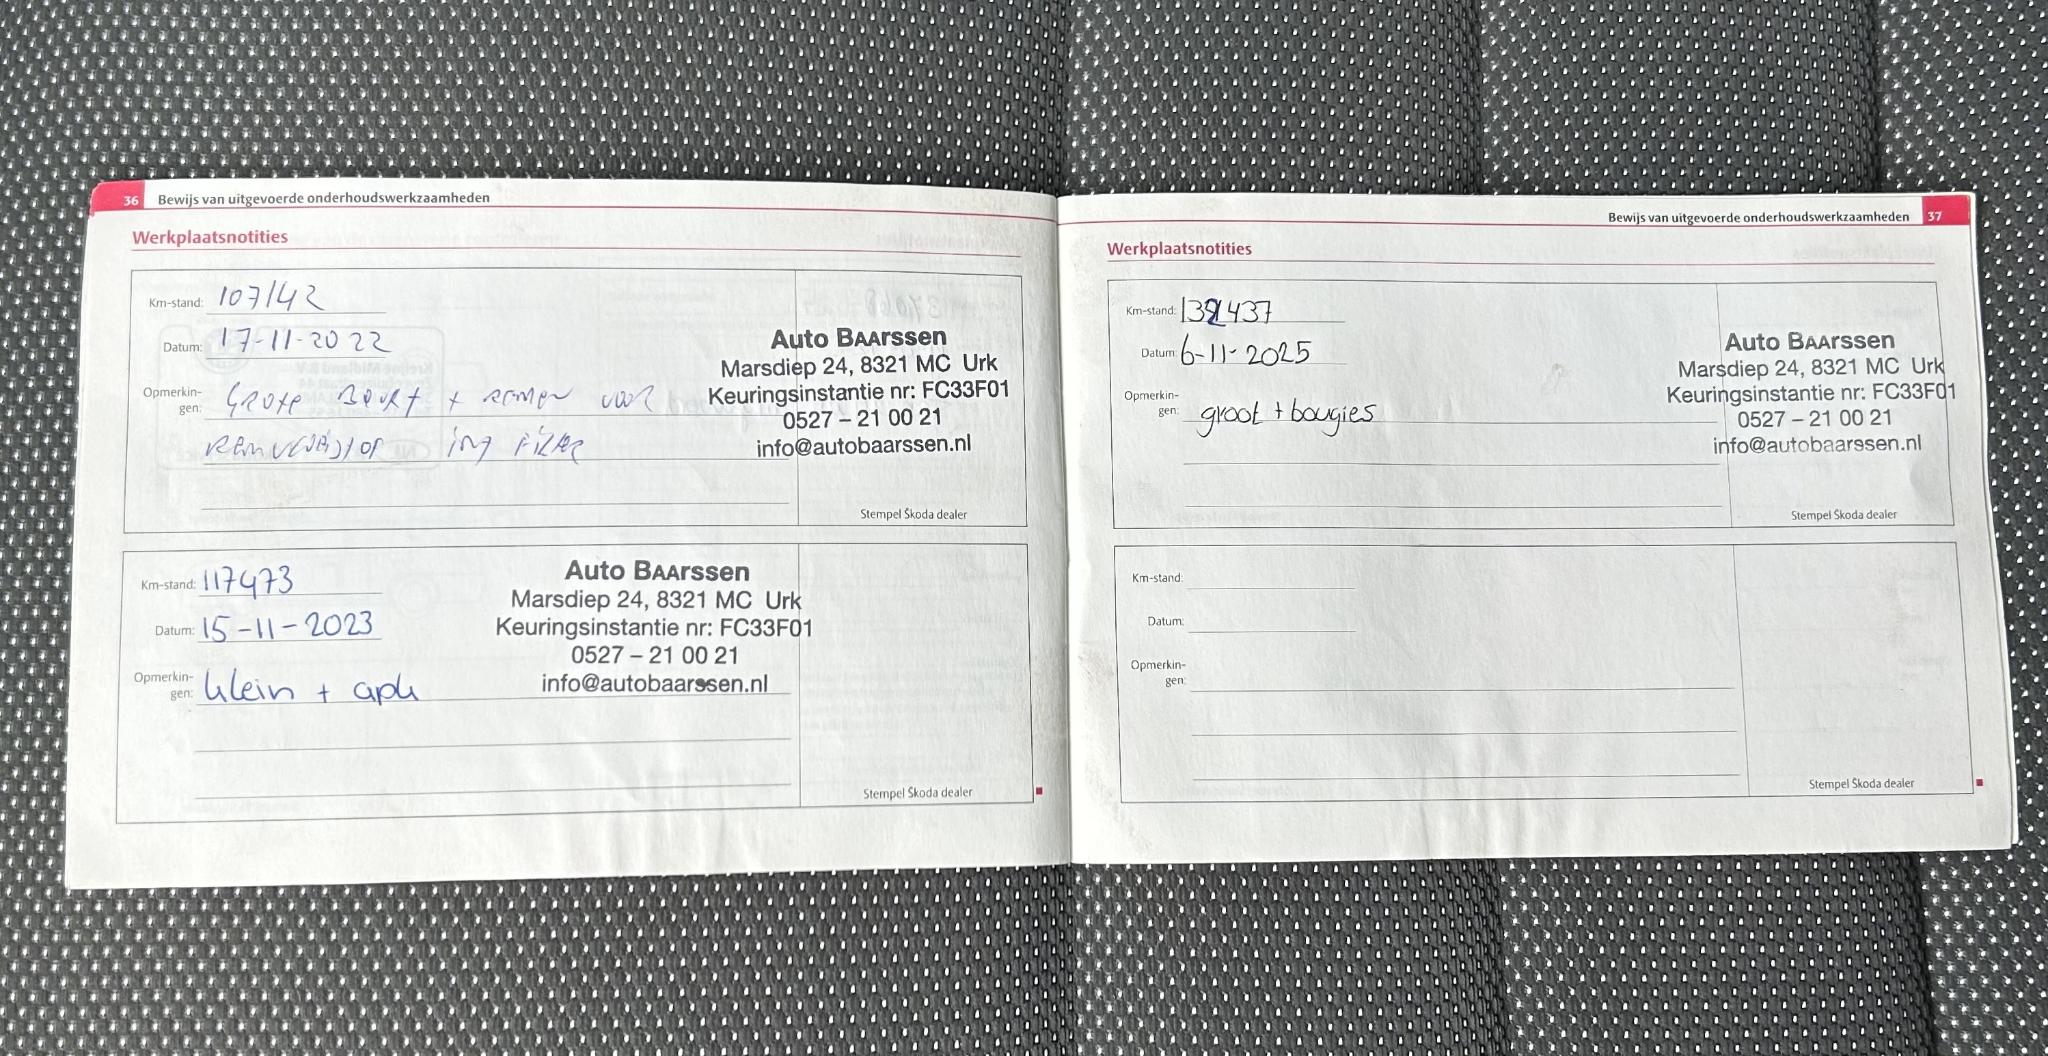 36 Bewijs van uitgevoerde onderhoudswerkzaamheden
Werkplaatsnotities
Km-stand: 107142
Datum: 17-11-2022
Opmerkin-
gen: Grote Beurt + remmen voor
remvloeistof int Filter
Auto BAArssen
Marsdiep 24, 8321 MC Urk
Keuringsinstantie nr: FC33F01
0527 – 21 00 21
info@autobaarssen.nl
Stempel Škoda dealer
Km-stand: 117473
Datum: 15-11-2023
Opmerkin-
gen: klein + apk
Auto BAArssen
Marsdiep 24, 8321 MC Urk
Keuringsinstantie nr: FC33F01
0527 – 21 00 21
info@autobaarssen.nl
Stempel Škoda dealer
Bewijs van uitgevoerde onderhoudswerkzaamheden 37
Werkplaatsnotities
Km-stand:
Datum: 6-11-2025
Opmerkin-
gen: groot + bougies
Auto BAArssen
Marsdiep 24, 8321 MC Urk
Keuringsinstantie nr: FC33F01
0527 – 21 00 21
info@autobaarssen.nl
Stempel Škoda dealer
Km-stand:
Datum:
Opmerkin-
gen:
Stempel Škoda dealer